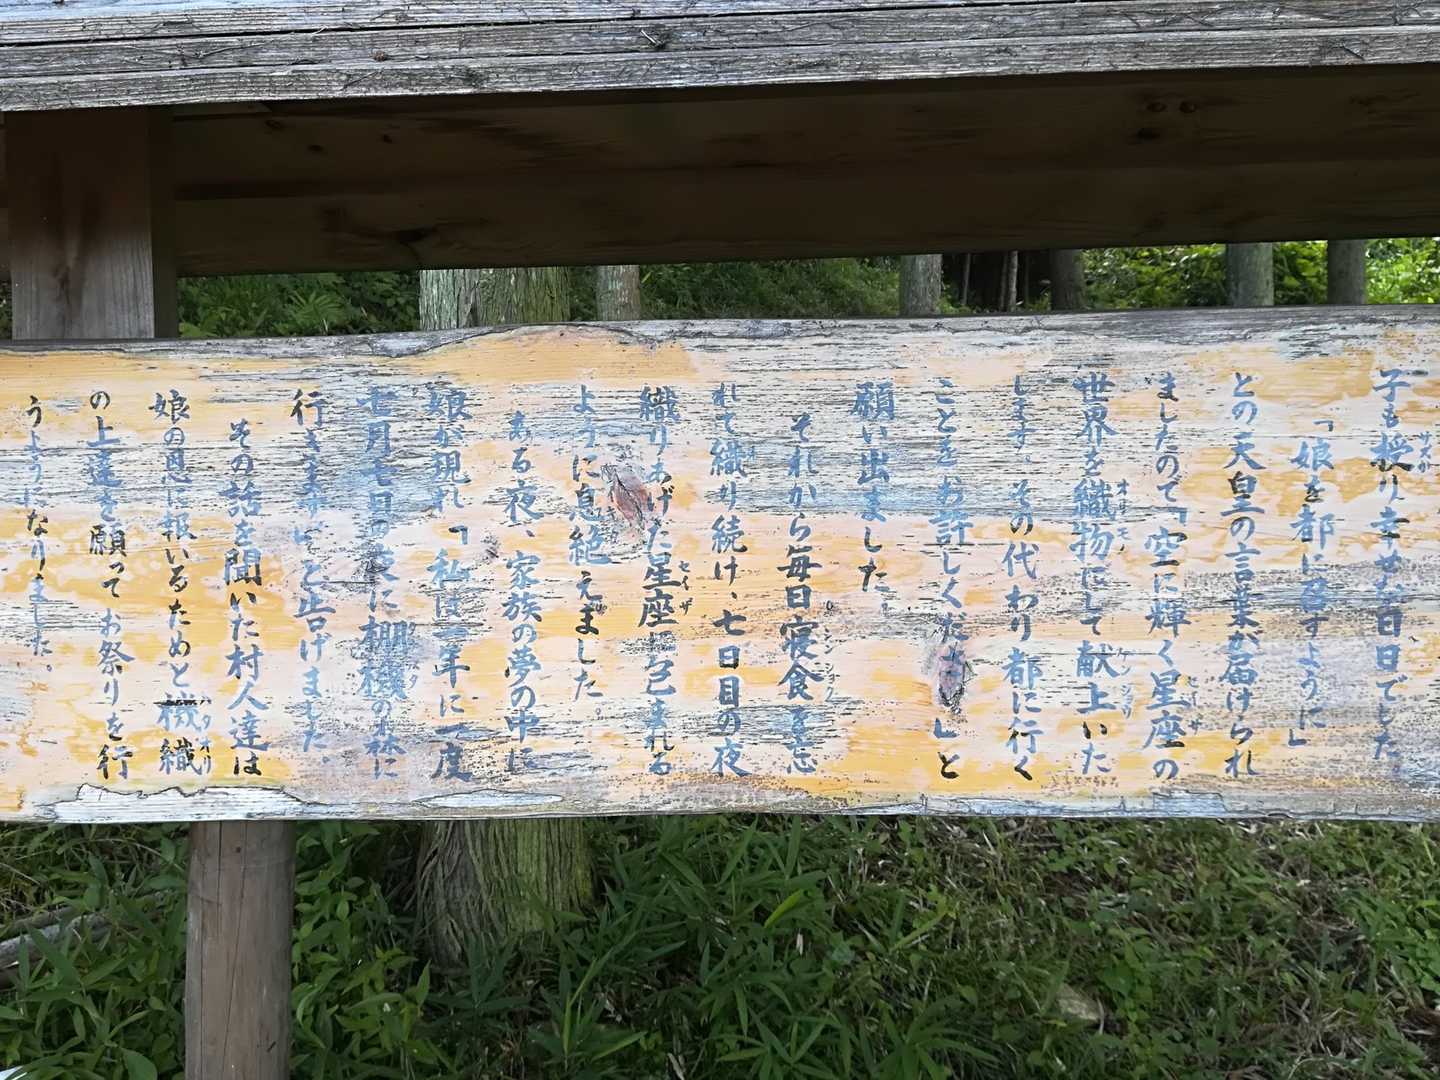 子も授り幸せな日日でした
「娘を都に召すように」
との天皇の言葉が届けられ
ましたので「空に輝く星座の
世界を織物にして献上いた
します。その代わり都に行く
ことをお許しください」と
願い出ました。
それから毎日寝食を忘
れて織り続け、七日目の夜
織りあげた星座に包まれる
ように息絶えました。
ある夜、家族の夢の中に
娘が現れ「私は一年に一度
七月七日の夜に棚機の森に
行きます」と告げました。
その話を聞いた村人達は
娘の恩に報いるためと機織
の上達を願ってお祭りを行
うようになりました。